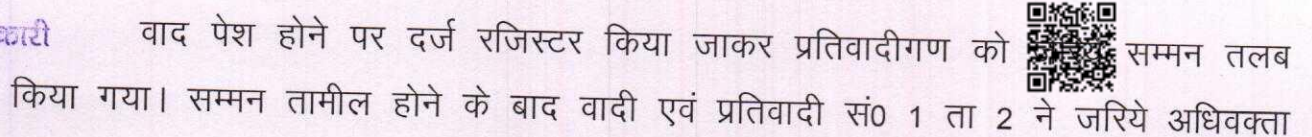 कारी वाद पेश होने पर दर्ज रजिस्टर किया जाकर प्रतिवादीगण को सम्मन तलब
किया गया। सम्मन तामील होने के बाद वादी एवं प्रतिवादी सं0 1 ता 2 ने जरिये अधिवक्ता